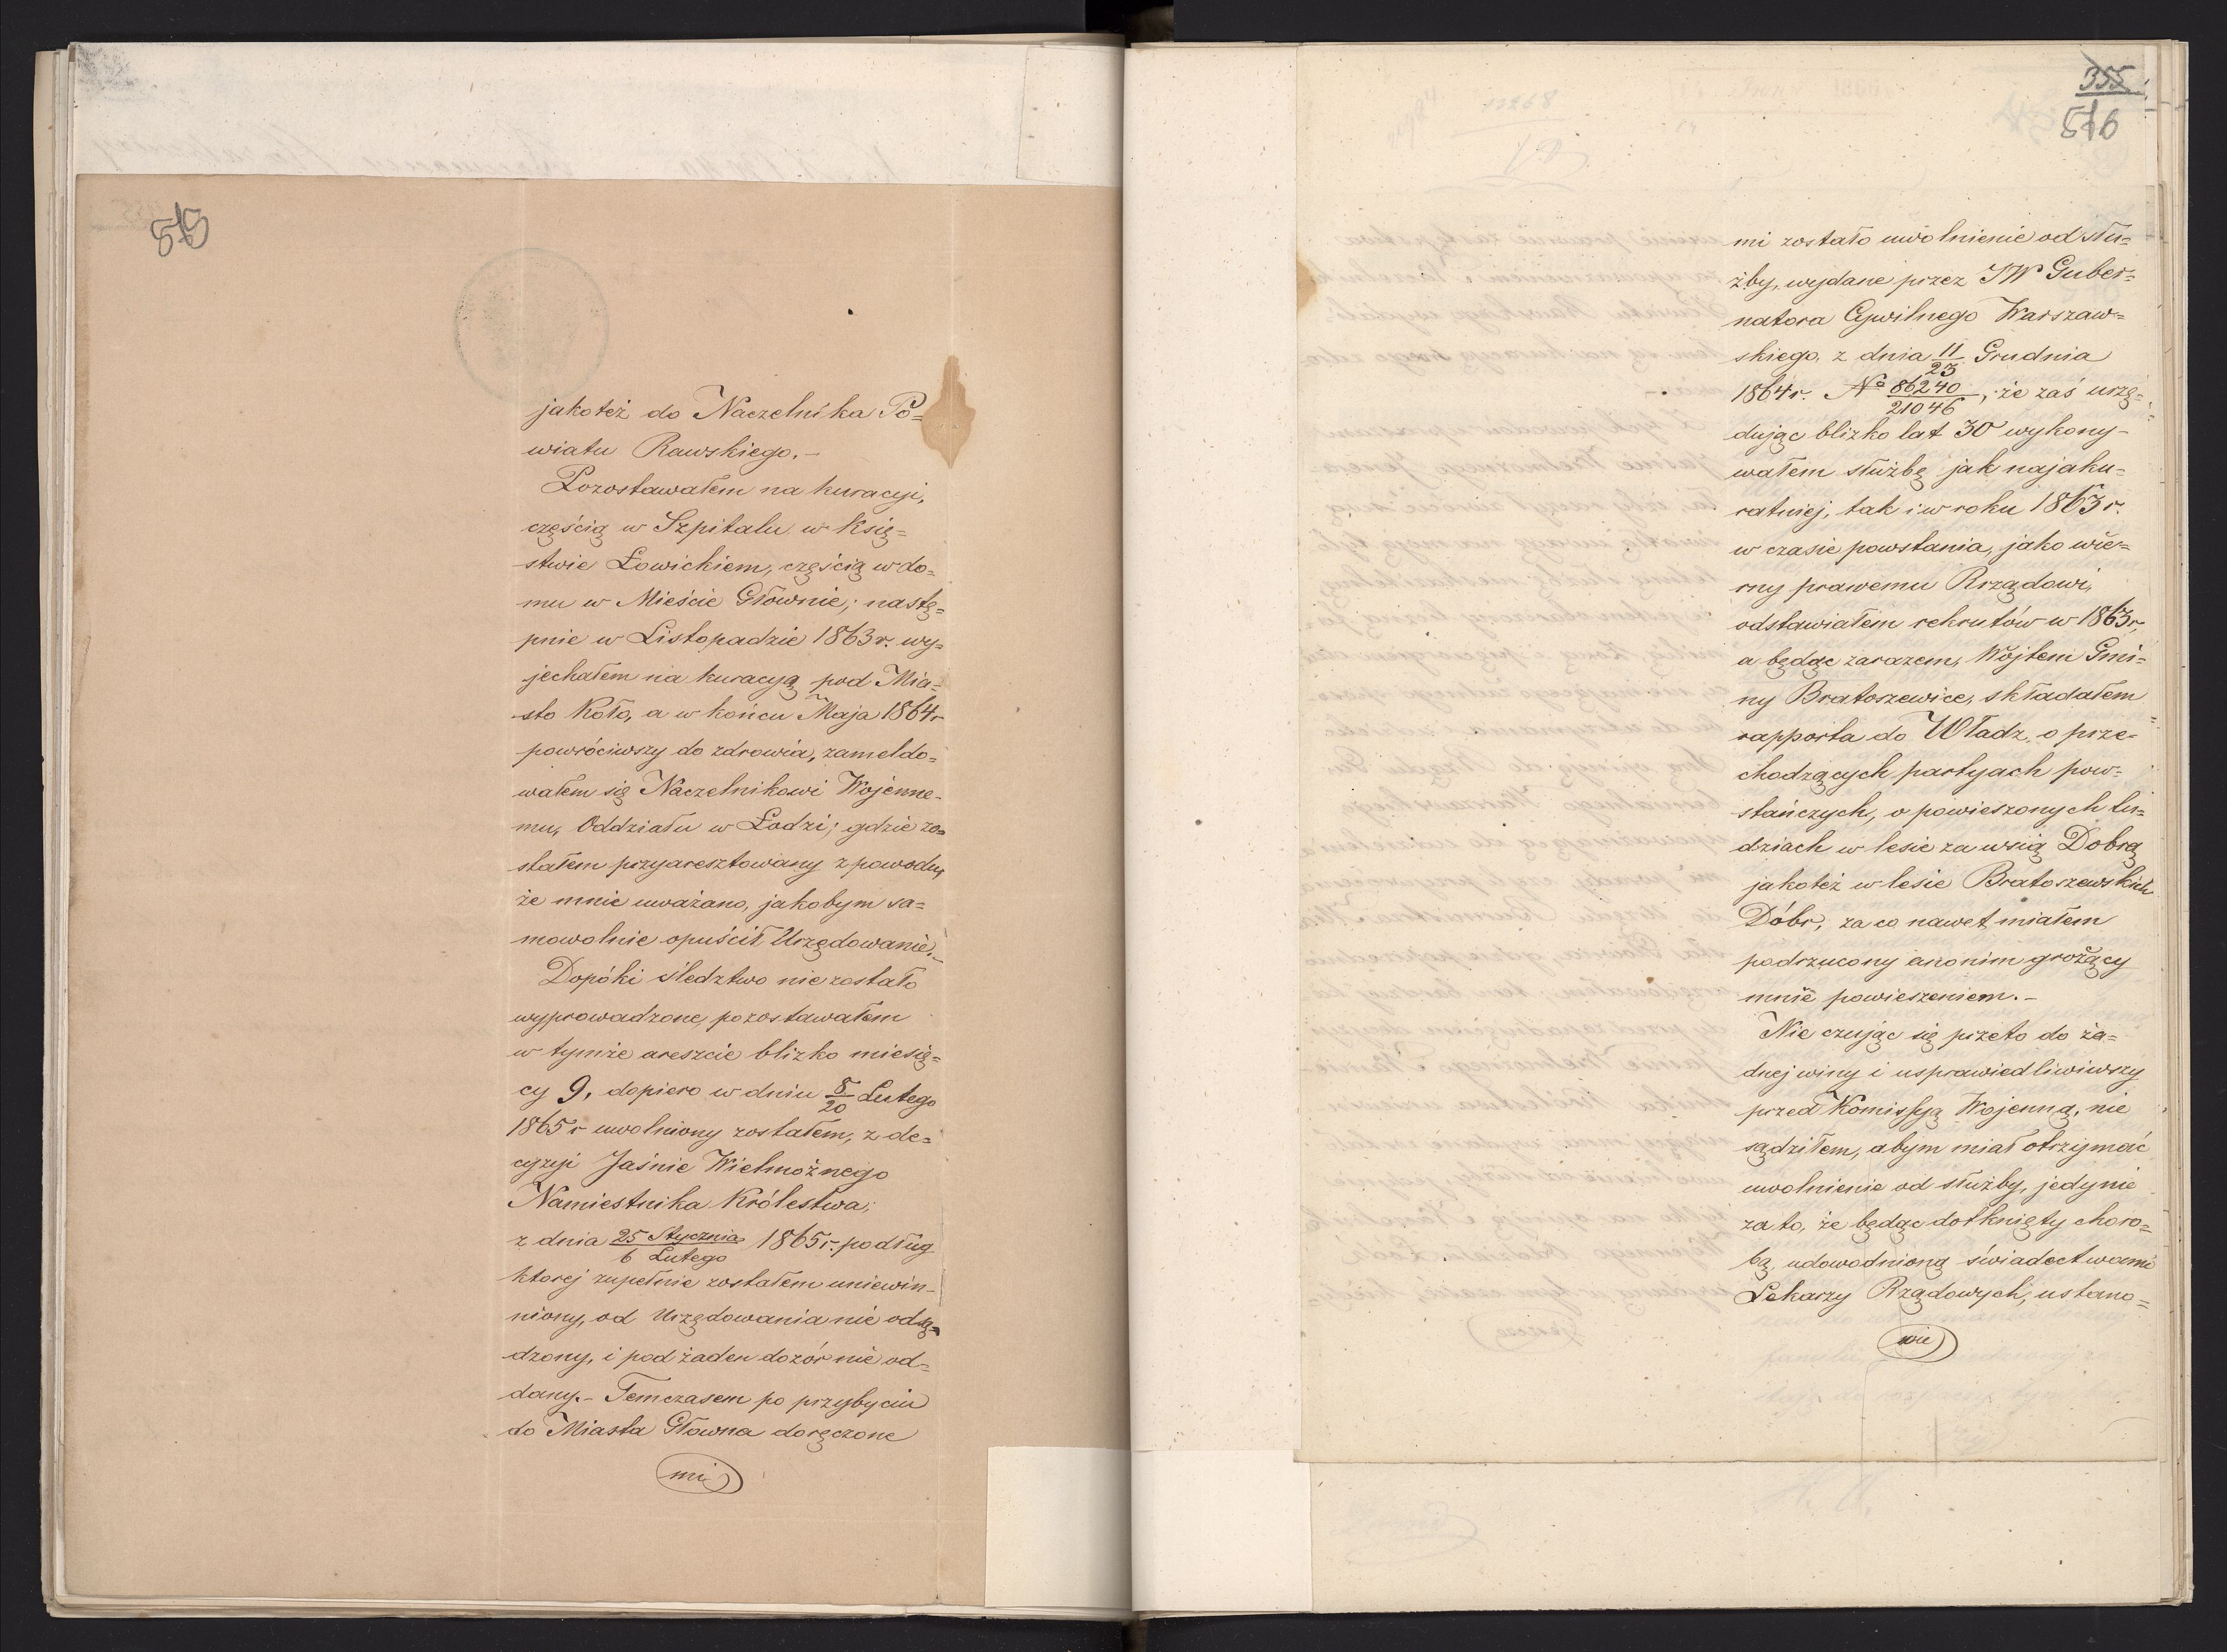 515
jakoteż do Naczelnika Po=
wiatu Rawskiego. –
Pozostawałem na kuracyi,
częścią w Szpitalu w Księ=
stwie Łowickiem, częścią w do=
mu w Mieście Głownie; nastę=
pnie w Listopadzie 1863 r. wy=
jechałem na kuracyą pod Mia=
sto Koło, a w końcu Maja 1864 r
powróciwszy do zdrowia, zameldo=
wałem się Naczelnikowi Wojenne-
mu, Oddziału w Łodzi; gdzie zo=
stałem przyaresztowany z powodu,
że mnie uważano, jakobym sa=
mowolnie opuścił Urzędowanie. –
Dopóki śledztwo nie zostało
wyprowadzone, pozostawałem
w tymże areszcie blizko miesię=
cy 9, dopiero w dniu 8/20 Lutego
1865 r uwolniony zostałem, z de=
cyzyi Jaśnie Wielmożnego
Namiestnika Królestwa,
z dnia 25 Stycznia/6 Lutego 1865 r. podług
ktorej zupełnie zostałem uniewin-
niony, od Urzędowania nie odsą=
dzony, i pod żaden dozór nie od=
dany. – Temczasem po przybyciu
do Miasta Głowna doręczone
mi
355
516
mi zostało uwolnienie od słu=
żby, wydane przez JW Guber=
natora Cywilnego Warszaw=
skiego, z dnia 11/23 Grudnia
1864 r. No 86240/21046, że zaś urzę=
dując blizko lat 30 wykony-
wałem służbę jak najaku=
ratniej, tak i w roku 1863 r.
w czasie powstania, jako wie=
rny prawemu Rrządowi,
odstawiałem rekrutów w 1863 r,
a będąc zarazem, Wójtem Gmi=
ny Bratoszewice, składałem
rapporta do Władz, o prze=
chodzących partyach pow=
stańczych, o powieszonych lu=
dziach w lesie za wsią Dobrą
jakoteż w lesie Bratoszewskich
Dóbr, za co nawet miałem
podrzucony anonim grożący
mnie powieszeniem. –
Nie czując się przeto do ża=
dnej winy i usprawiedliwiwszy
przed Komissyą Wojenną, nie
sądziłem, abym miał otrzymać
uwolnienie od służby, jedynie
za to, że będąc dotknięty choro=
bą, udowodnioną świadectwami
Lekarzy Rządowych, ustano=
wie